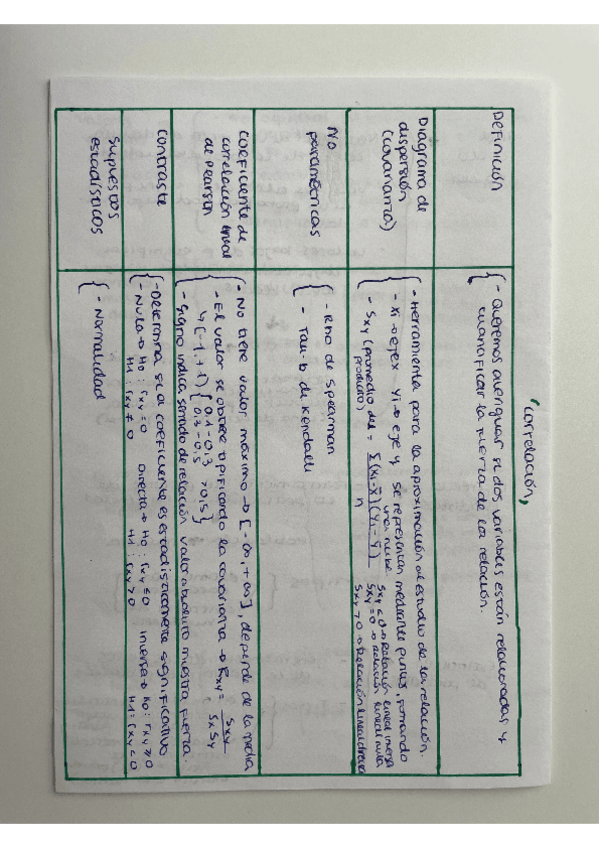 "correlación"
Definición
- Queremos averiguar si dos variables están relacionadas y
cuantificar la fuerza de la relación.
Diagrama de
dispersión
(covarianza)
- Herramienta para la aproximación al estudio de la relación.
- Xi → eje x - Yi → eje y se representan mediante puntos, formando
una nube.
- Sxy (promedio del = Σ(xi-x̄)(yi-ȳ)
producto) n
Sxy < 0 → Relación lineal inversa
Sxy = 0 → Relación lineal nula
Sxy > 0 → Relación lineal directa
No
paramétricas
- Rho de Spearman
- Tau-b de Kendall
Coeficiente de
correlación lineal
de Pearson
- No tiene valor máximo → [-∞, +∞], depende de la media
- El valor se obtiene tipificando la covarianza → Rxy = Sxy
SxSy
↳ [-1, +1) { 0,1-0,3 >0,5 }
0,3-0,5
- Signo indica sentido de relación valor absoluto muestra fuerza
Contraste
- Determina si el coeficiente es estadísticamente significativo
- Nula → H0: rxy = 0 Directa → H0: rxy ≤ 0 inversa → H0: rxy ≥ 0
H1: rxy ≠ 0 H1: rxy > 0 H1: rxy < 0
Supuestos
estadísticos
- Normalidad